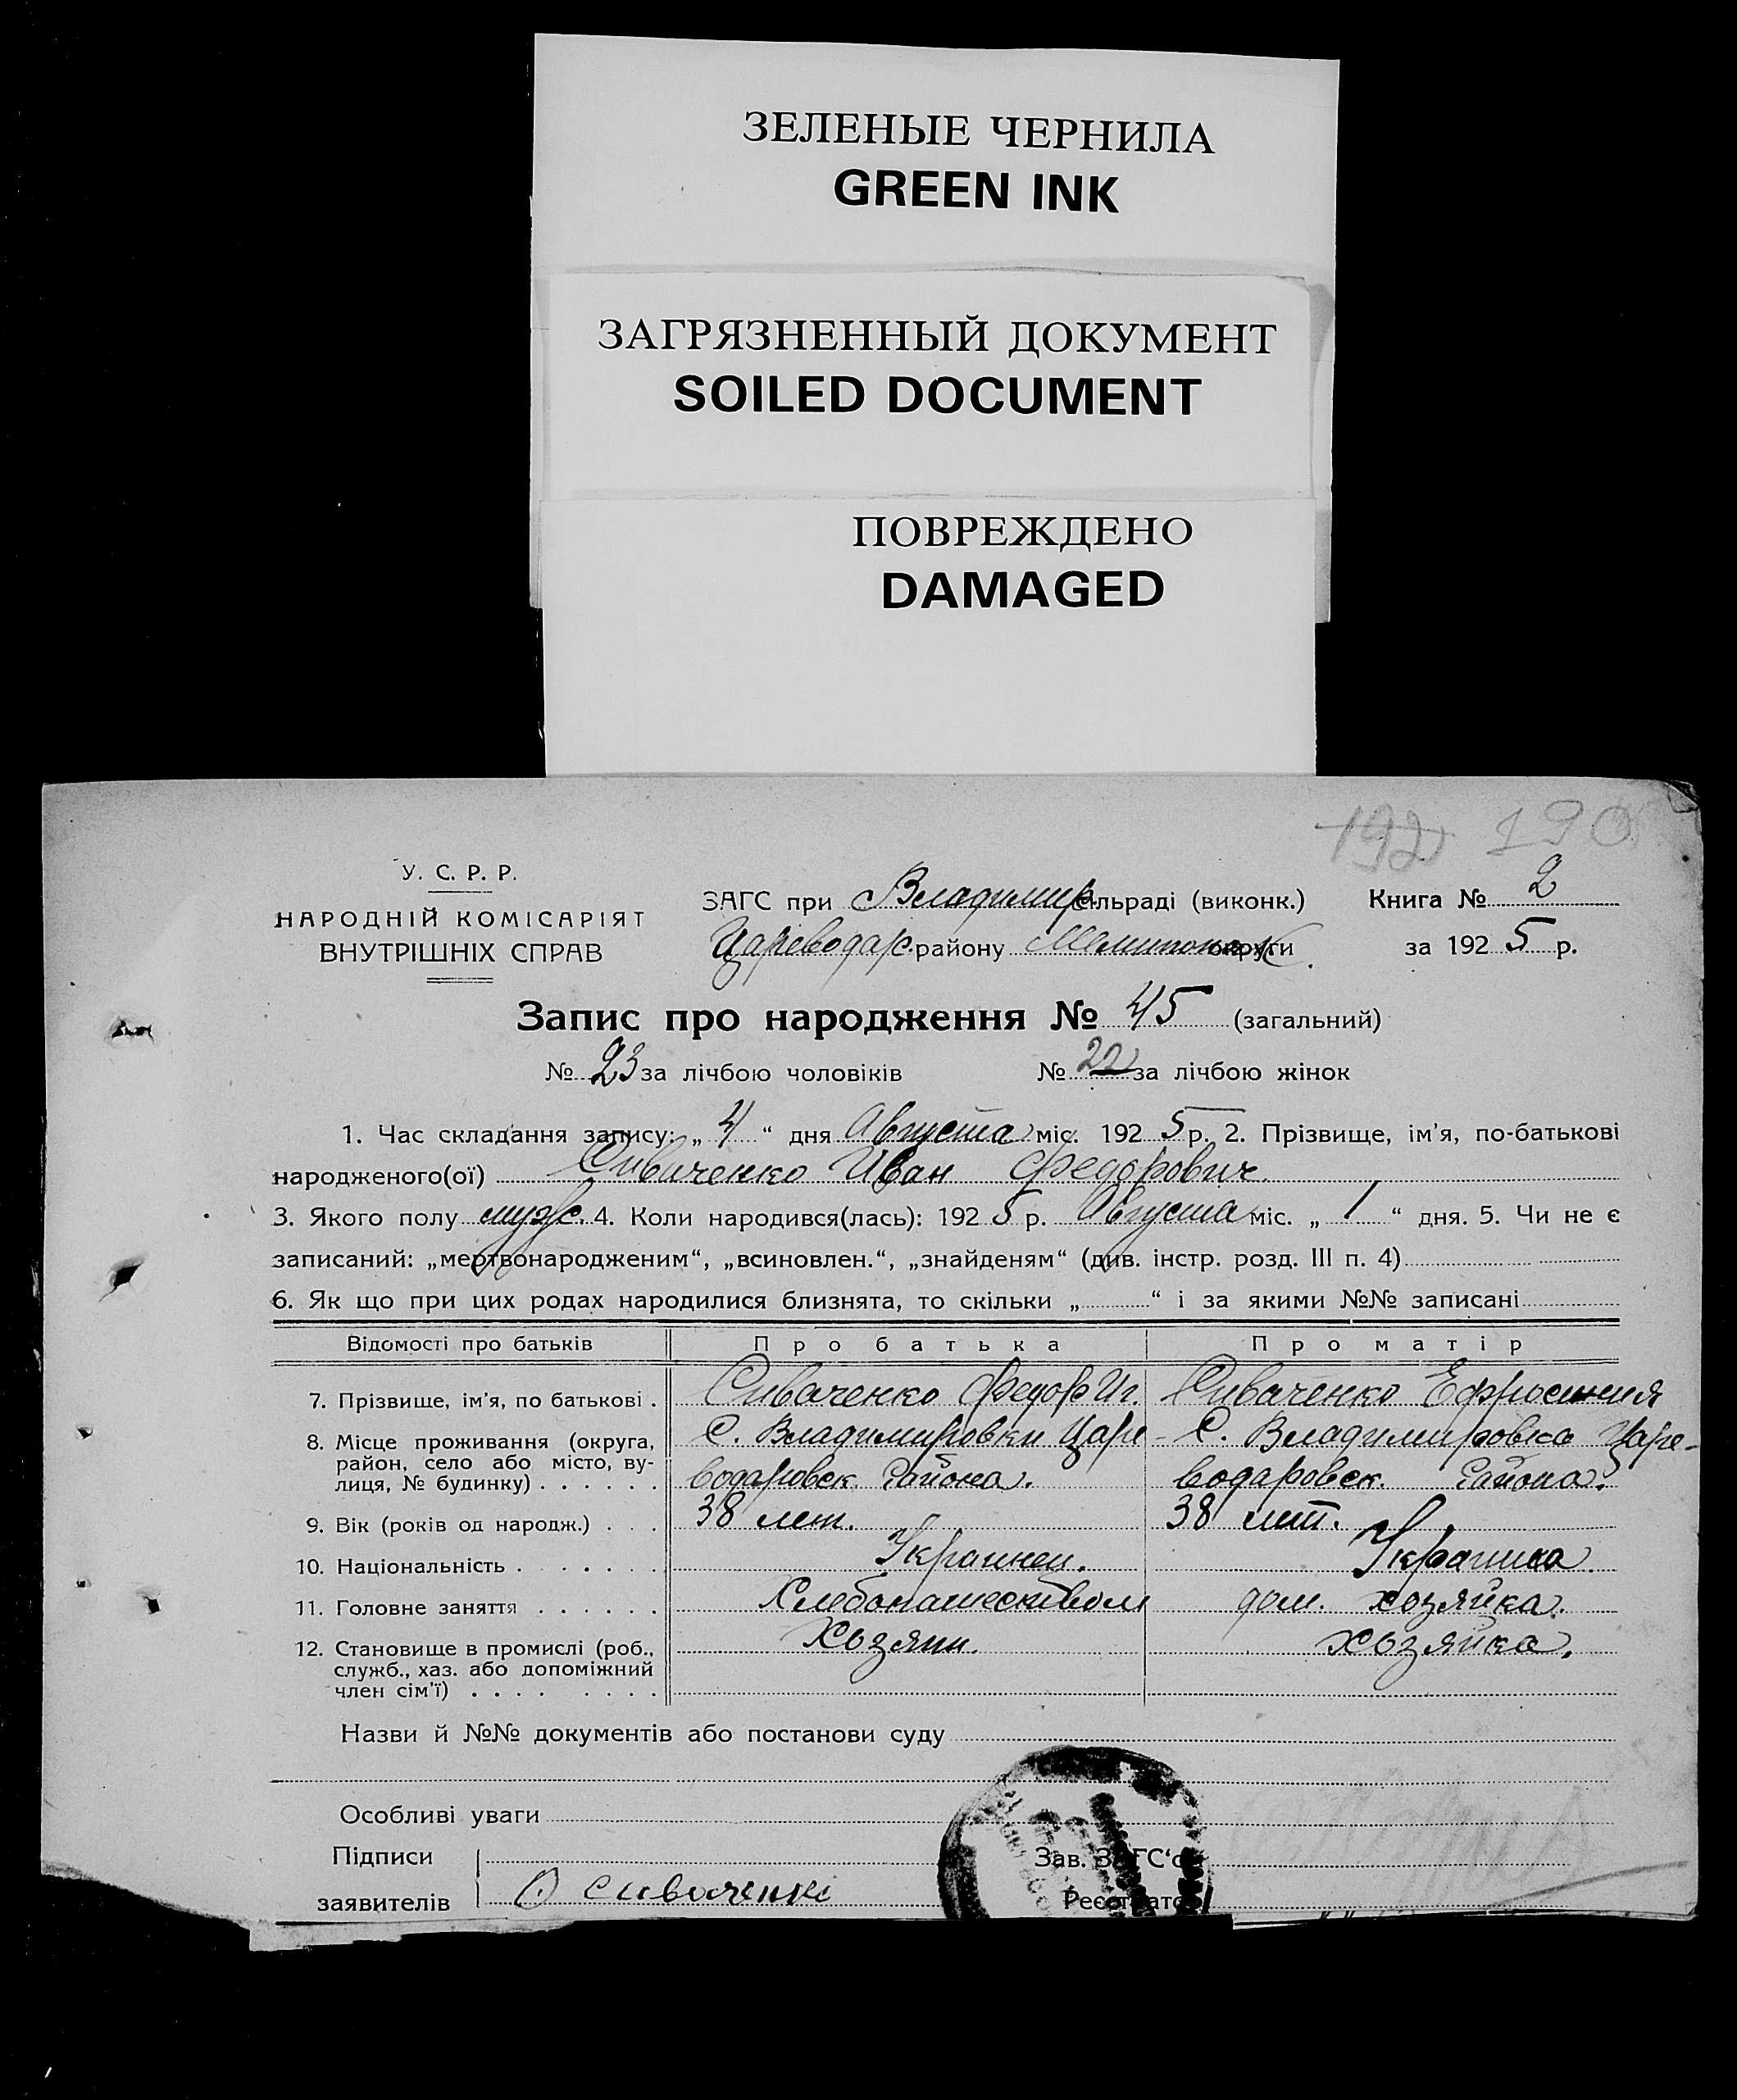 ЗЕЛЕНЫЕ ЧЕРНИЛА
GREEN INK
ЗАГРЯЗНЕННЫЙ ДОКУМЕНТ
SOILED DOCUMENT
ПОВРЕЖДЕНО
DAMAGED
192 190
У. С. Р. Р.
НАРОДНІЙ КОМІСАРІЯТ
ВНУТРІШНІХ СПРАВ
ЗАГС при Владимир. сільраді (виконк.) Книга № 2
Цареводар. району Мелитопол округи за 1925 р.
Запис про народження № 45 (загальний)
№ 23 за лічбою чоловіків № 22 за лічбою жінок
1. Час складання запису: „4“ дня Августа міс. 1925 р. 2. Прізвище, ім’я, по-батькові
народженого(ої) Сиваченко Иван Федорович.
3. Якого полу муж. 4. Коли народився(лась): 1925 р. Августа міс. „1“ дня. 5. Чи не є
записаний: „мертвонародженим“, „всиновлен.“, „знайденям“ (див. інстр. розд. III п. 4)
6. Як що при цих родах народилися близнята, то скільки „ “ і за якими №№ записані
Відомості про батьків Про батька Про матір
7. Прізвище, ім’я, по батькові . Сиваченко Федор Иг. Сиваченко Ефросиния
8. Місце проживання (округа, район, село або місто, вулиця, № будинку) . . . . . . С. Владимировки Царе-водаровск. Района. С. Владимировка Царе-водаровск. Района.
9. Вік (років од народж.) . . . 38 лет. 38 лет.
10. Національність . . . . . . . Украинец. Украинка.
11. Головне заняття . . . . . . Хлебопашеством дом. хозяйка.
12. Становище в промислі (роб., служб., хаз. або допоміжний член сім’ї) . . . . . . . . Хозяин. хозяйка.
Назви й №№ документів або постанови суду
Особливі уваги
Підписи
заявителів Сиваченко
Зав. ЗАГС‘ом
Реєстратор